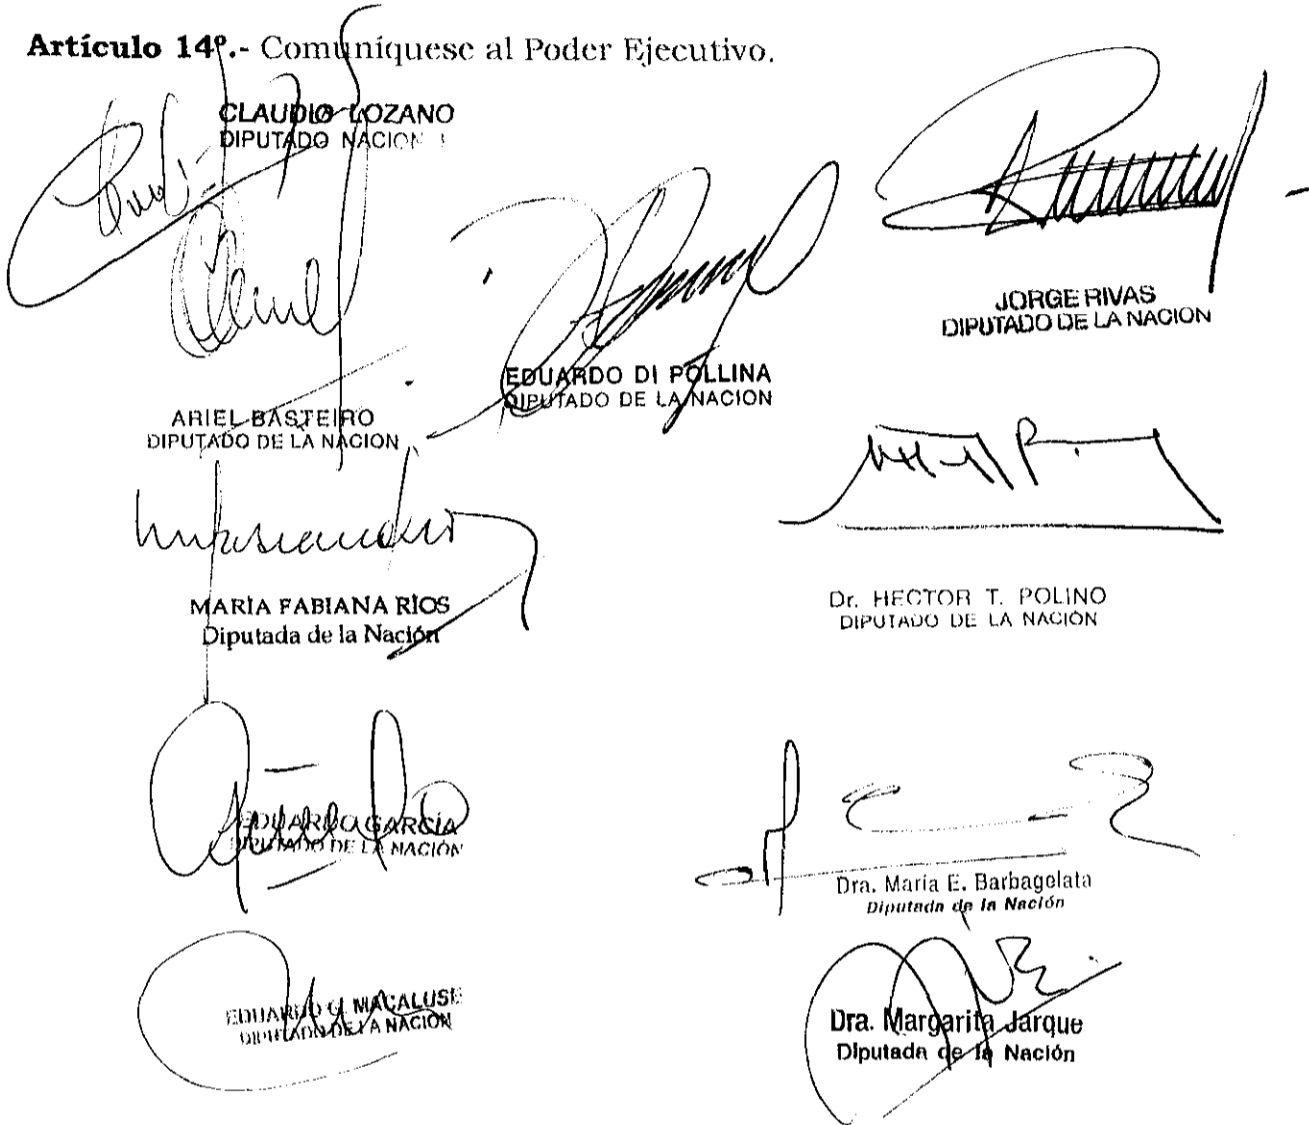 Artículo 14º.- Comuníquese al Poder Ejecutivo.
CLAUDIO LOZANO
DIPUTADO NACION
JORGE RIVAS
DIPUTADO DE LA NACION
EDUARDO DI POLLINA
DIPUTADO DE LA NACION
ARIEL BASTEIRO
DIPUTADO DE LA NACION
MARÍA FABIANA RÍOS
Diputada de la Nación
Dr. HECTOR T. POLINO
DIPUTADO DE LA NACION
EDUARDO GARCÍA
DIPUTADO DE LA NACIÓN
Dra. María E. Barbagelata
Diputada de la Nación
EDUARDO G. MACALUSE
DIPUTADO DE LA NACIÓN
Dra. Margarita Jarque
Diputada de la Nación